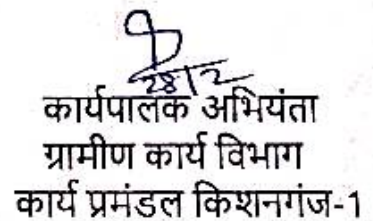 28/2
कार्यपालक अभियंता
ग्रामीण कार्य विभाग
कार्य प्रमंडल किशनगंज-1